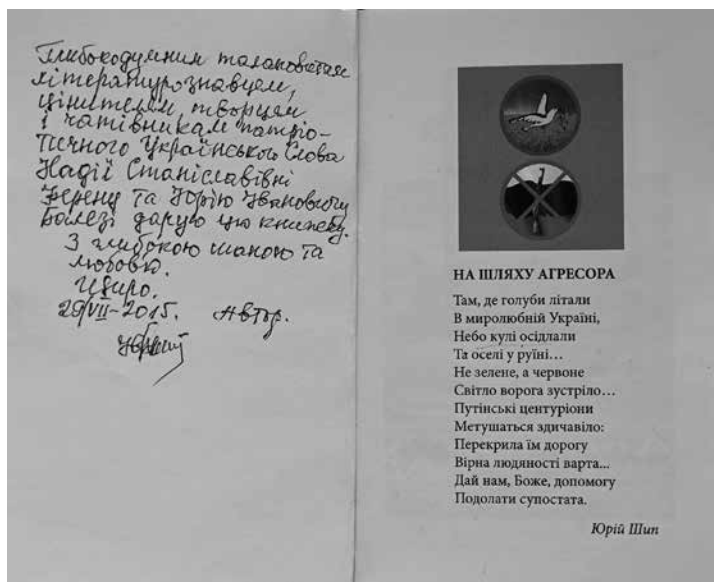 Глибокодумним талановитим
літературознавцям,
цінителям, творцям
і чатівникам патріо-
тичного Українського Слова
Надії Станіславівні
та Юрію Івановичу
дарую цю книжку.
З глибокою шаною та
любов'ю.
Щиро.
29/VII-2015. Автор.
НА ШЛЯХУ АГРЕСОРА
Там, де голуби літали
В миролюбній Україні,
Небо кулі осідлали
Та оселі у руїні…
Не зелене, а червоне
Світло ворога зустріло…
Путінські центуріони
Метушаться здичавіло:
Перекрила їм дорогу
Вірна людяності варта...
Дай нам, Боже, допомогу
Подолати супостата.
Юрій Шип